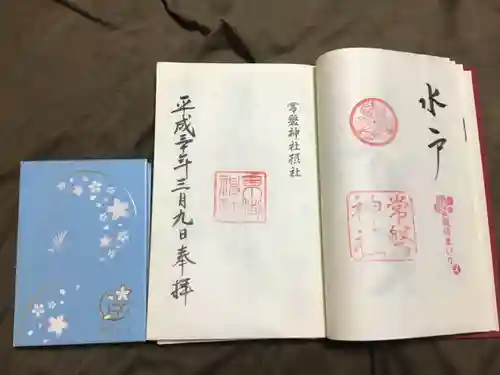 水戸
常磐
神社
常磐神社摂社
東湖
神社
平成三十年三月九日奉拝